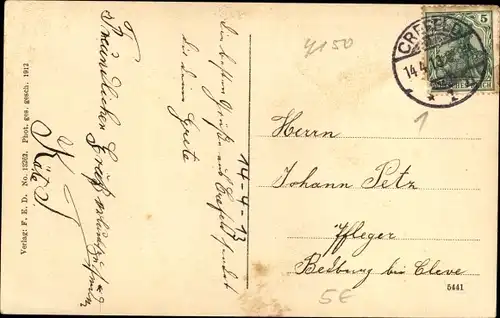 Verlag: F. E. D. No. 13263. Phot. ges. gesch. 1912
Freundlichen Gruß
Käte S
Die besten Grüße aus Crefeld sendet
dir deine Grete
14-4-13
4150
CREFELD
14.4.13
* 1
5
1
Herrn
Johann Petz
Pfleger
Bedburg bei Cleve
5441
5E